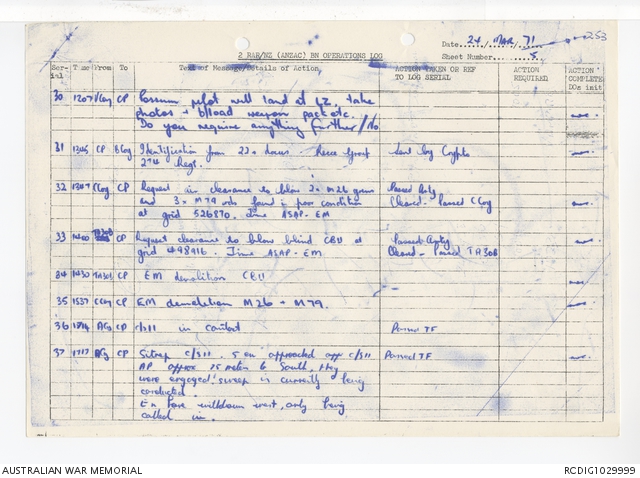 2 RAR/NZ (ANZAC) BN OPERATIONS LOG
Date 24 / MAR / 71
253
Sheet Number 5
Ser-ial Time From To Text of Message/Details of Action ACTION TAKEN OR REF TO LOG SERIAL ACTION REQUIRED ACTION COMPLETE DOs init
30 1207 VCoy CP Possum pilot will land at LZ, take
photos + upload weapon pack etc.
Do you require anything further / No
31 1345 CP BCoy Identification from 22 Recce Group Sent by Crypto
274 Regt.
32 1347 CCoy CP Request in clearance to blow 2x M26 gren Passed Arty
and 3x M79 rds found in poor condition Cleared - Passed CCoy
at grid 526870. Time ASAP - EM
33 1400 CP Request clearance to blow blind CBU at Passed Arty
grid 498916. Time ASAP - EM. Cleared - Passed TA30B
34 1430 TA30B CP EM demolition CBU
35 1537 CCoy CP EM demolition M26 + M79.
36 1714 ACoy CP C/S11 in contact Passed TF
37 1717 ACoy CP Sitrep C/S11. 5 en approached C/S11 Passed TF
AP approx 15 meters to South, they
were engaged, sweep is currently being
conducted.
En have withdrawn west, arty being
called in.
AUSTRALIAN WAR MEMORIAL
RCDIG1029999